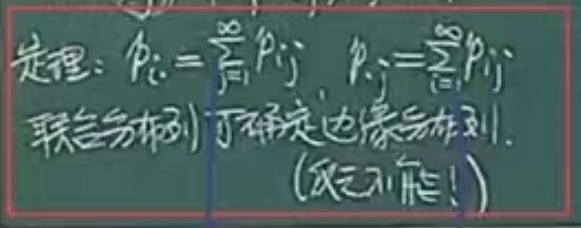 定理: p_{i·} = \sum_{j=1}^{\infty} p_{ij}, p_{·j} = \sum_{i=1}^{\infty} p_{ij}
联合分布列可确定边缘分布列.
(反之不能!)